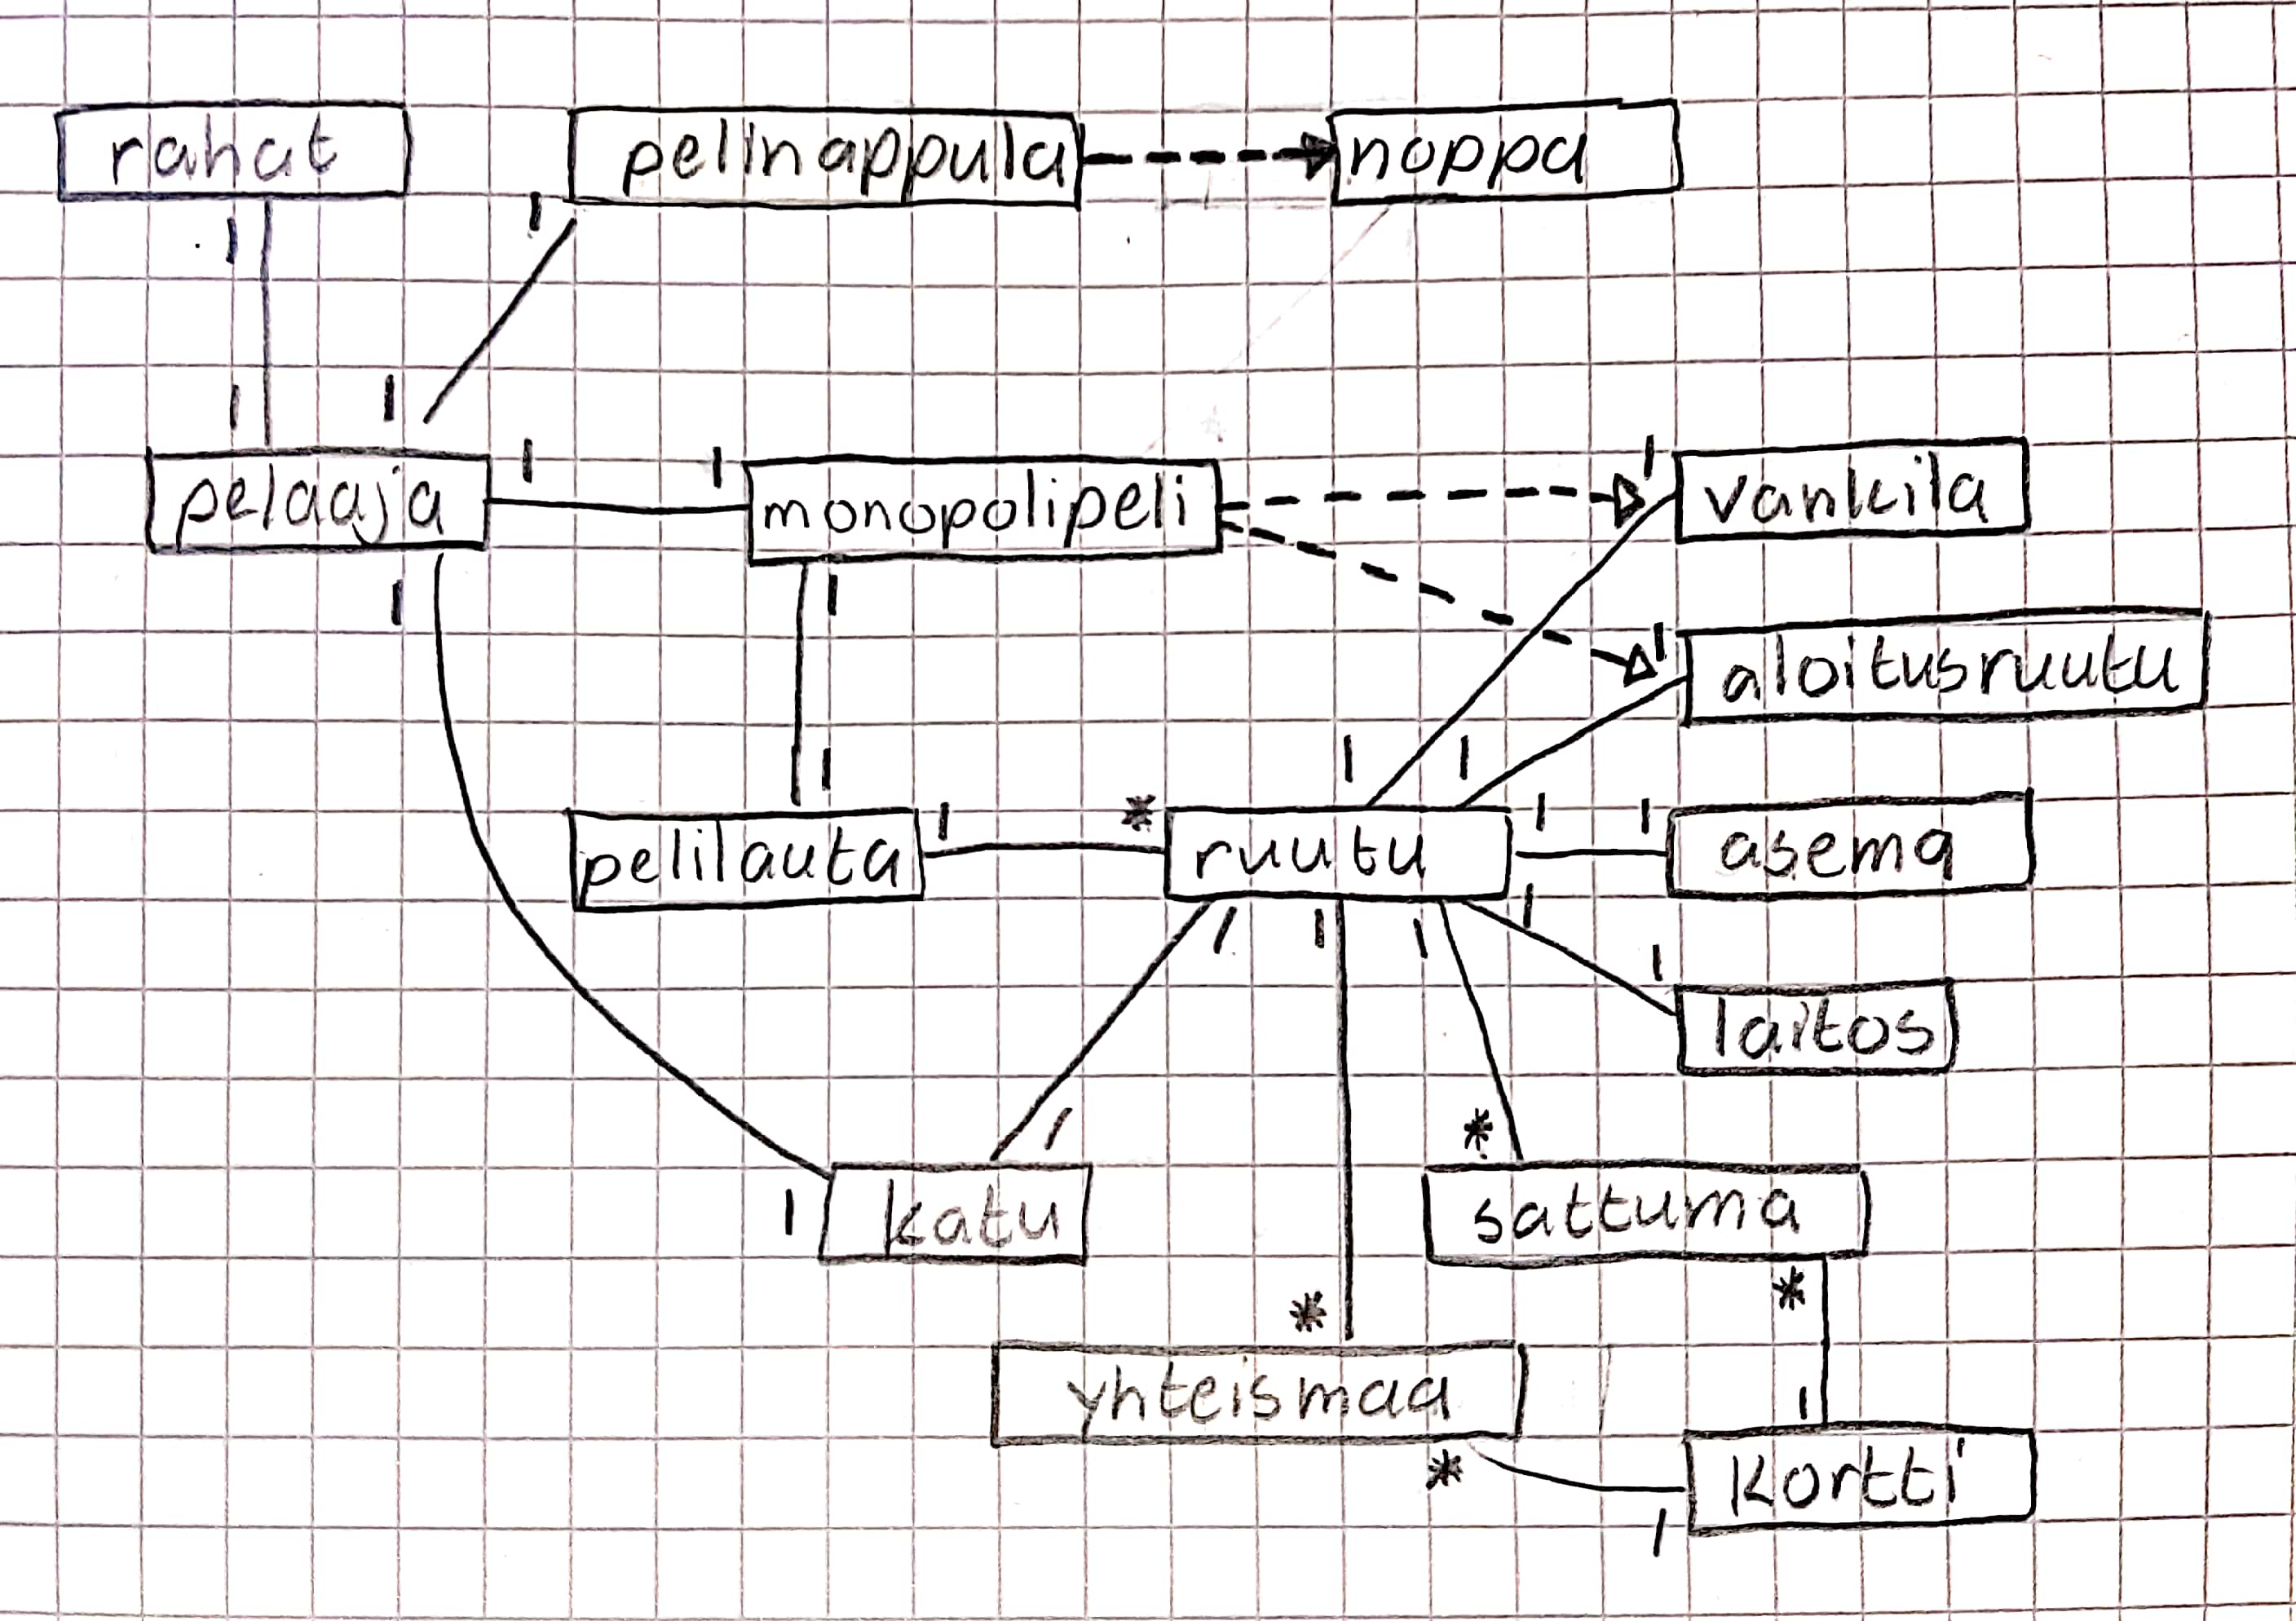 rahat
pelinappula
noppa
1
1
1
1
pelaaja
1
1
monopolipeli
1
vankila
1
1
1
aloitusruutu
1
1
1
pelilauta
1
*
ruutu
1
1
asema
1
1
1
1
1
laitos
1
*
1
katu
sattuma
*
*
yhteismaa
1
*
kortti
1